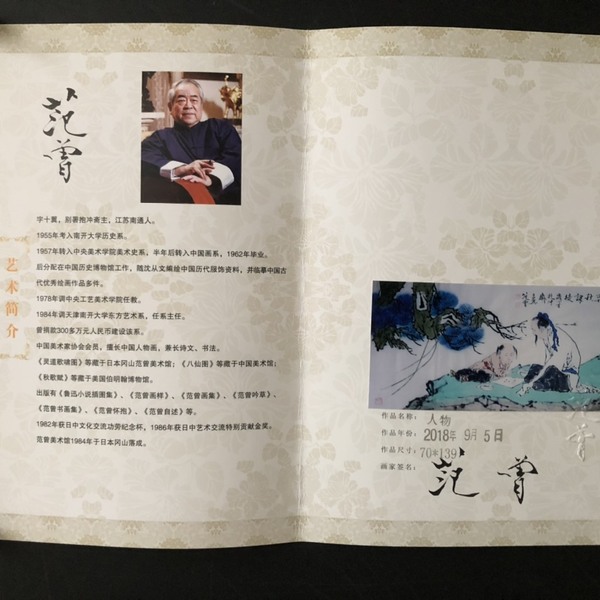 范曾
艺术简介
字十翼，别署抱冲斋主，江苏南通人。
1955年考入南开大学历史系。
1957年转入中央美术学院美术史系，半年后转入中国画系，1962年毕业。
后分配在中国历史博物馆工作，随沈从文编绘中国历代服饰资料，并临摹中国古
代优秀绘画作品多件。
1978年调中央工艺美术学院任教。
1984年调天津南开大学东方艺术系，任系主任。
曾捐款300多万元人民币建设该系。
中国美术家协会会员，擅长中国人物画，善长诗文、书法。
《灵道歌啸图》等藏于日本冈山范曾美术馆；《八仙图》等藏于中国美术馆；
《秋歌赋》等藏于美国伯明翰博物馆。
出版有《鲁迅小说插图集》、《范曾画样》、《范曾画集》、《范曾吟草》、
《范曾书画集》、《范曾怀抱》、《范曾自述》等。
1982年获日中文化交流功劳纪念杯，1986年获日中艺术交流特别贡献金奖。
范曾美术馆1984年于日本冈山落成。
作品名称：人物
作品年份：2018年 9月 5日
作品尺寸：70*139
画家签名：范曾